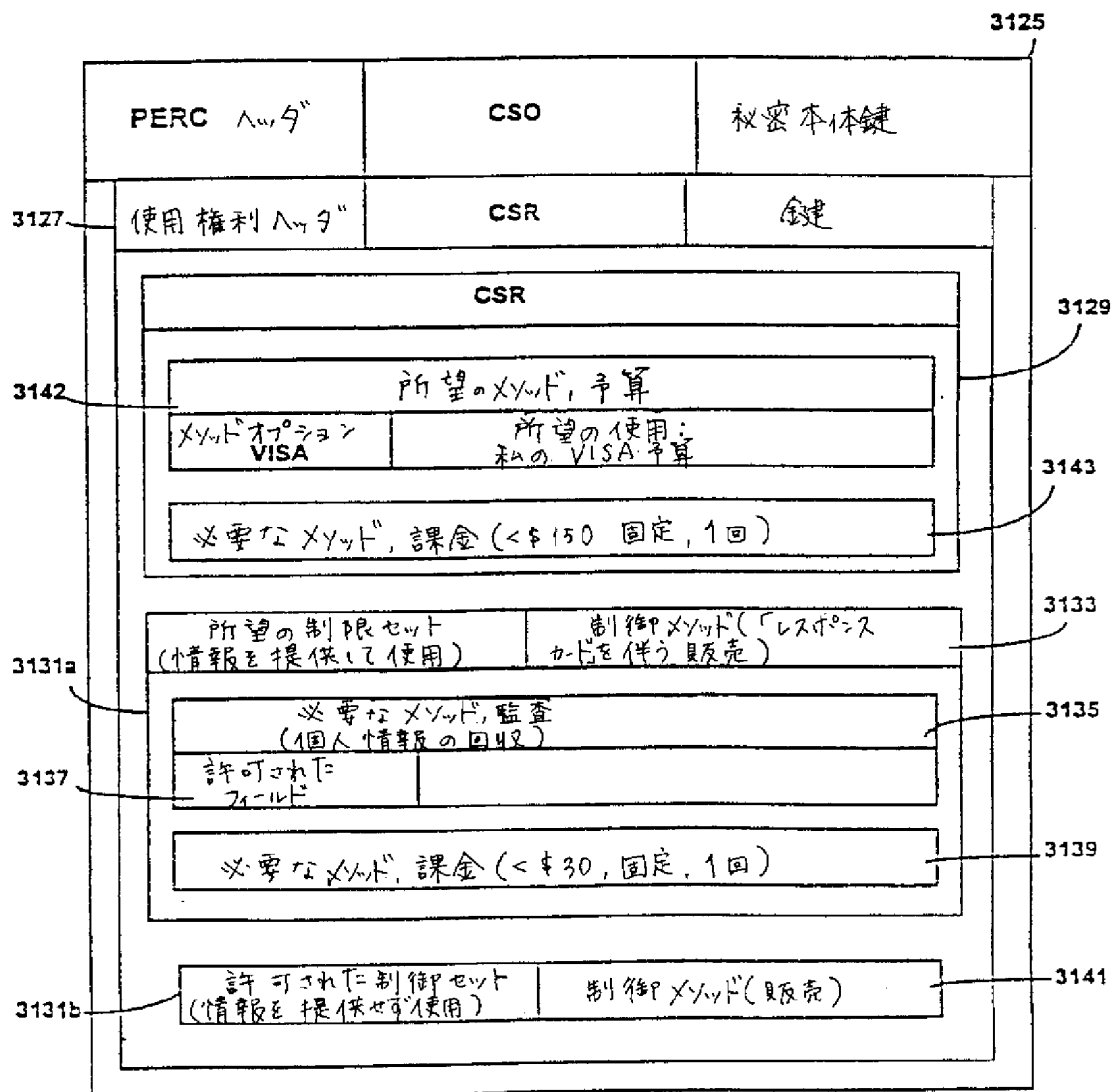 3125
PERC ヘッダ
CSO
秘密本体鍵
3127
使用権利ヘッダ
CSR
鍵
CSR
3129
3142
所望のメソッド, 予算
メソッドオプション
VISA
所望の使用:
私の VISA 予算
3143
必要なメソッド, 課金 (<$150 固定, 1回)
所望の制限セット
(情報を提供して使用)
制御メソッド(「レスポンス
カード」を伴う販売)
3133
3131a
必要なメソッド, 監査
(個人情報の回収)
3135
許可された
フィールド
3137
必要なメソッド, 課金 (<$30, 固定, 1回)
3139
許可された制御セット
(情報を提供せず使用)
制御メソッド(販売)
3141
3131b